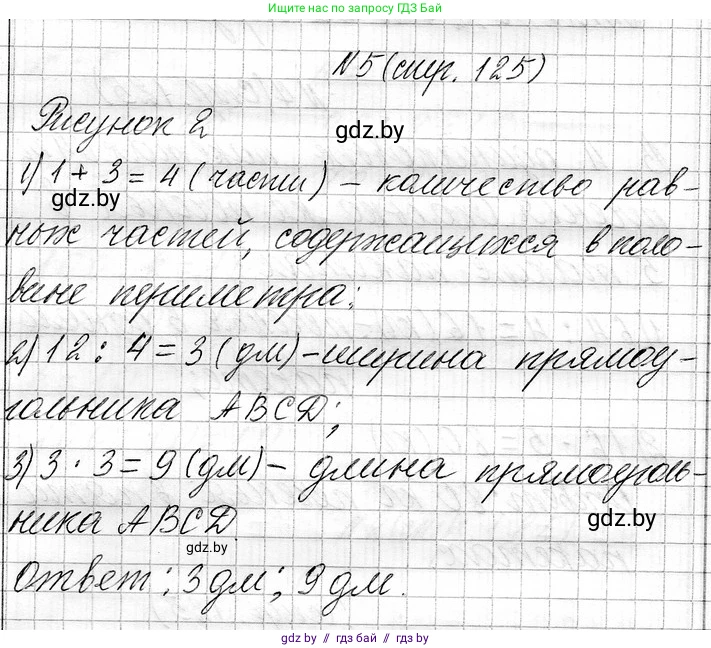 Ищите нас по запросу ГДЗ БАЙ
N5 (стр. 125)
Рисунок 2
gdz.by
1) 1 + 3 = 4 (части) – количество рав-
gdz.by
ных частей, содержащихся в поло-
вине периметра;
2) 12 : 4 = 3 (дм) – ширина прямоу-
гольника ABCD;
3) 3 · 3 = 9 (дм) – длина прямоуголь-
ника ABCD.
gdz.by
gdz.by
Ответ: 3 дм; 9 дм.
gdz.by // гдз бай // gdz.by